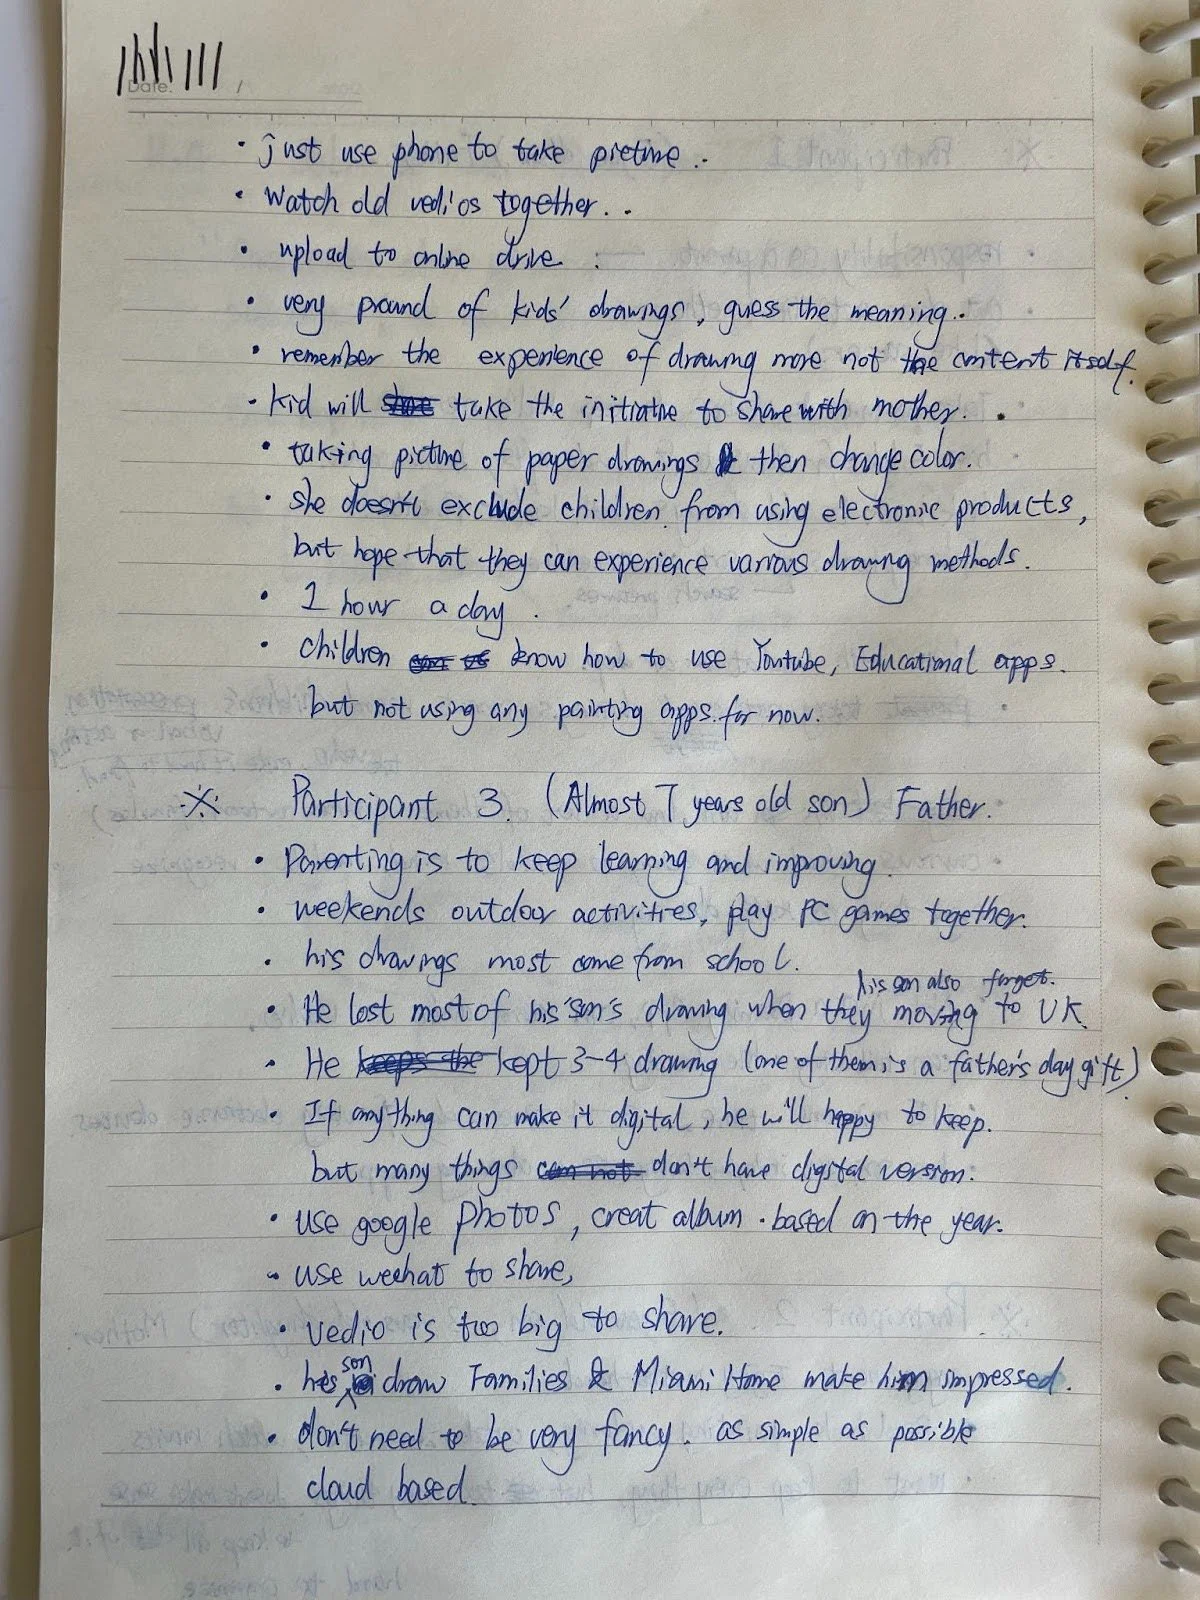 Date:
· just use phone to take picture.
· Watch old vedios together..
· upload to online drive.
· very pround of kids' drawings, guess the meaning.
· remember the experience of drawing more not the content itself.
· kid will take the initiatve to share with mother.
· taking picture of paper drawings then change color.
· she doesn't exclude children from using electronic products,
but hope that they can experience various drawing methods.
· 1 hour a day.
· children know how to use Youtube, Educational apps.
but not using any painting apps for now.
※ Participant 3. (Almost 7 years old son) Father.
· Parenting is to keep learning and improving.
· weekends outdoor activities, play PC games together.
· his drawings most come from school.
his son also forget.
· He lost most of his son's drawing when they moving to UK.
· He keeps the kept 3-4 drawing (one of them is a father's day gift)
· If anything can make it digital, he will happy to keep.
but many things can not don't have digital version.
· use google photos, creat album · based on the year.
· use wechat to share,
· vedio is too big to share.
· his son draw Families & Miami Home make him impressed.
· don't need to be very fancy. as simple as possible
cloud based.